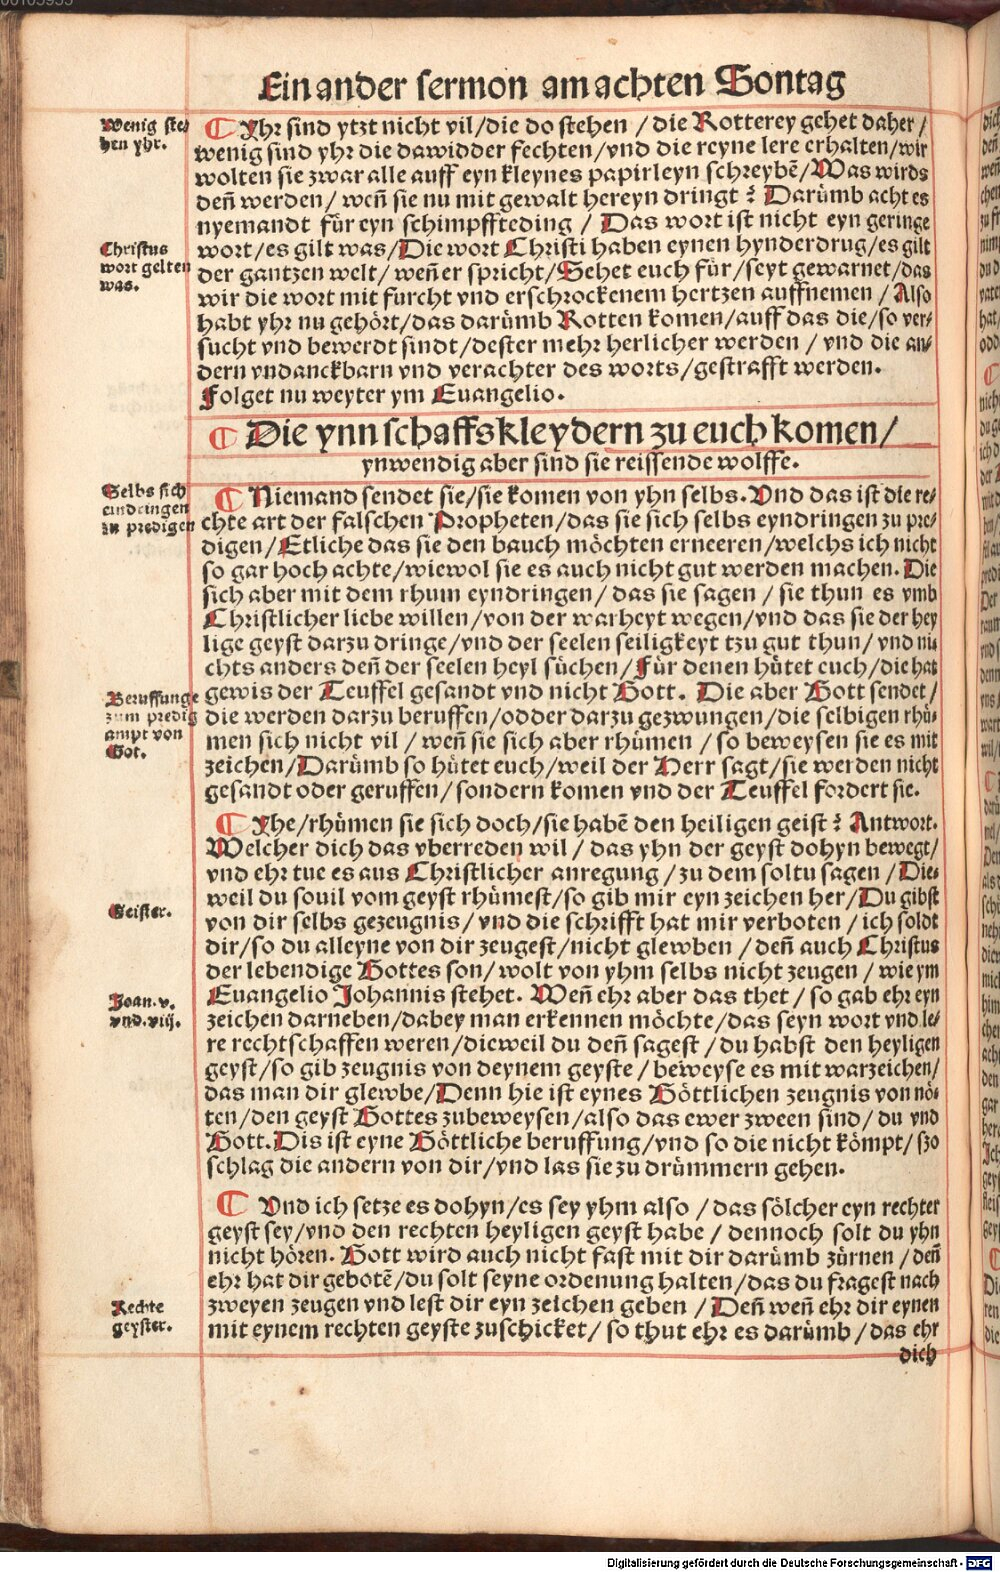 Ein ander sermon am achten Sontag
Wenig ste-
hen yhr.
¶ Yhr sind ytzt nicht vil/die do stehen / die Rotterey gehet daher /
wenig sind yhr die dawidder fechten/vnd die reyne lere erhalten/wir
wolten sie zwar alle auff eyn kleynes papirleyn schreybē/Was wirds
deñ werden/ weñ sie nu mit gewalt hereyn dringt ? Darümb acht es
nyemandt für eyn schimpffteding / Das wort ist nicht eyn geringe
Christus
wort gelten
was.
wort/es gilt was/Die wort Christi haben eynen hynderdrug/es gilt
der gantzen welt/ weñ er spricht/Sehet euch für/seyt gewarnet/das
wir die wort mit furcht vnd erschrockenem hertzen auffnemen / Also
habt yhr nu gehört/das darümb Rotten komen/auff das die/so ver-
sucht vnd bewerdt sindt/dester mehr herlicher werden / vnd die an-
dern vndanckbarn vnd verachter des worts/gestrafft werden.
Folget nu weyter ym Euangelio.
¶ Die ynn schaffskleydern zu euch komen/
ynwendig aber sind sie reissende wolffe.
Selbs sich
eindringen
zu predigen
¶ Niemand sendet sie/sie komen von yhn selbs. Vnd das ist die re-
chte art der falschen Propheten/das sie sich selbs eyndringen zu pre-
digen/Etliche das sie den bauch möchten erneeren/welchs ich nicht
so gar hoch achte/wiewol sie es auch nicht gut werden machen. Die
sich aber mit dem rhum eyndringen/ das sie sagen / sie thun es vmb
Christlicher liebe willen/von der warheyt wegen/vnd das sie der hey
lige geyst darzu dringe/vnd der seelen seiligkeyt tzu gut thun/vnd ni-
chts anders deñ der seelen heyl süchen/Für denen hütet euch/die hat
Beruffunge
zum predig
ampt von
Got.
gewis der Teuffel gesandt vnd nicht Gott. Die aber Gott sendet/
die werden darzu beruffen/odder darzu gezwungen/die selbigen rhü-
men sich nicht vil / weñ sie sich aber rhümen / so beweysen sie es mit
zeichen/Darümb so hütet euch/weil der Herr sagt/sie werden nicht
gesandt oder geruffen/sondern komen vnd der Teuffel fordert sie.
¶ Yhe/rhümen sie sich doch/sie habē den heiligen geist ? Antwort.
Welcher dich das vberreden wil/ das yhn der geyst dohyn bewegt/
vnd ehr tue es aus Christlicher anregung/ zu dem soltu sagen /Die-
weil du souil vom geyst rhümest/so gib mir eyn zeichen her/Du gibst
Geister.
von dir selbs gezeugnis/vnd die schrifft hat mir verboten / ich soldt
dir/so du alleyne von dir zeugest/nicht glewben/ deñ auch Christus
der lebendige Gottes son/wolt von yhm selbs nicht zeugen / wie ym
Joan. v.
vnd. viij.
Euangelio Johannis stehet. Weñ ehr aber das thet / so gab ehr eyn
zeichen darneben/dabey man erkennen möchte/das seyn wort vnd le-
re rechtschaffen weren/dieweil du deñ sagest/du habst den heyligen
geyst/so gib zeugnis von deynem geyste / beweyse es mit warzeichen/
das man dir glewbe/Denn hie ist eynes Göttlichen zeugnis von nö-
ten/den geyst Gottes zubeweysen/also das ewer zween sind/du vnd
Gott. Dis ist eyne Göttliche beruffung/vnd so die nicht kömpt/ szo
schlag die andern von dir/vnd las sie zu drümmern gehen.
¶ Vnd ich setze es dohyn/es sey yhm also / das sölcher eyn rechter
geyst sey/vnd den rechten heyligen geyst habe / dennoch solt du yhn
nicht hören. Gott wird auch nicht fast mit dir darümb zürnen / deñ
ehr hat dir gebotē/du solt seyne ordenung halten/das du fragest nach
Rechte
geyster.
zweyen zeugen vnd lest dir eyn zeichen geben / Deñ weñ ehr dir eynen
mit eynem rechten geyste zuschicket/ so thut ehr es darümb/das ehr
dich
Digitalisierung gefördert durch die Deutsche Forschungsgemeinschaft - DFG